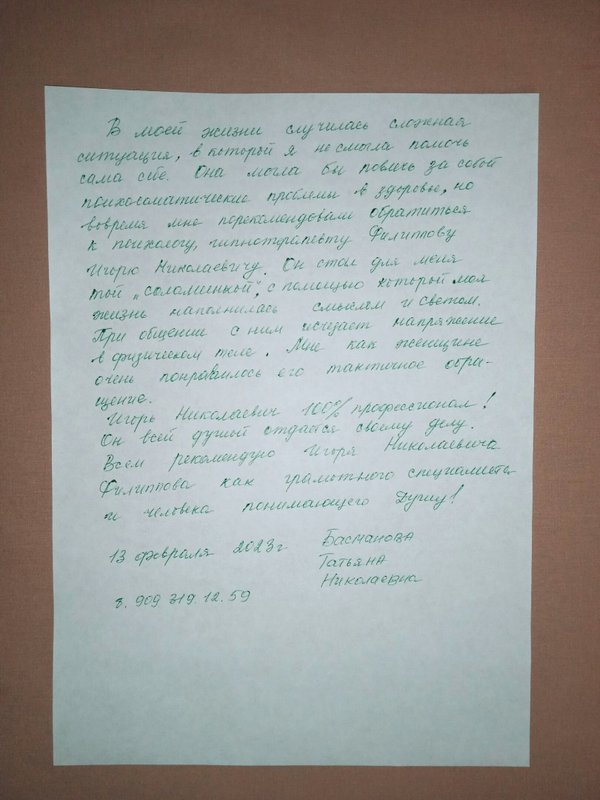 В моей жизни случилась сложная
ситуация, в которой я не смогла помочь
сама себе. Она могла бы повлечь за собой
психосоматические проблемы в здоровье, но
вовремя мне порекомендовали обратиться
к психологу, гипнотерапевту Филиппову
Игорю Николаевичу. Он стал для меня
той „соломинкой", с помощью которой моя
жизнь наполнилась смыслом и светом.
При общении с ним исчезает напряжение
в физическом теле. Мне как женщине
очень понравилось его тактичное обра-
щение.
Игорь Николаевич 100% профессионал!
Он всей душой отдаётся своему делу.
Всем рекомендую Игоря Николаевича
Филиппова как грамотного специалиста
и человека понимающего Душу!
13 февраля 2023г Басманова
Татьяна
Николаевна
8. 909 319. 12. 59